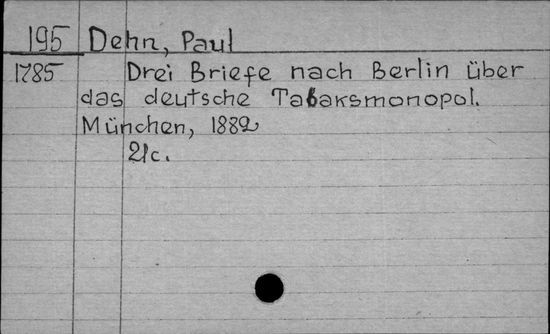 195 Dehn, Paul
1785 Drei Briefe nach Berlin über
das deutsche Tabaksmonopol.
München, 1882
21c.